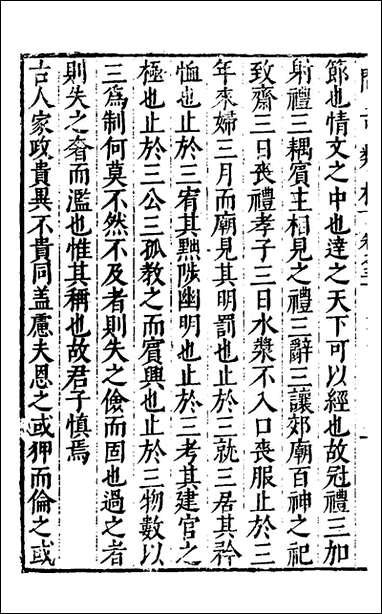 節也情文之中也達之天下可以經也故冠禮三加
射禮三耦賓主相見之禮三辭三讓郊廟百神之祀
致齋三日喪禮孝子三日水漿不入口喪服止於三
年來婦三月而廟見其明罰也止於三就三居其矜
恤也止於三宥其黜陟幽明也止於三考其建官之
極也止於三公三孤教之而賓興也止於三物數以
三為制何莫不然不及者則失之儉而固也過之者
則失之奢而濫也惟其稱也故君子慎焉
古人家政貴異不貴同盖慮夫恩之或狎而倫之或